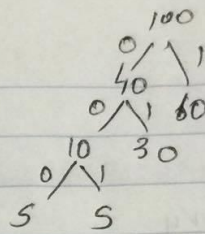 100
0 1
40 60
0 1
10 30
0 1
5 5